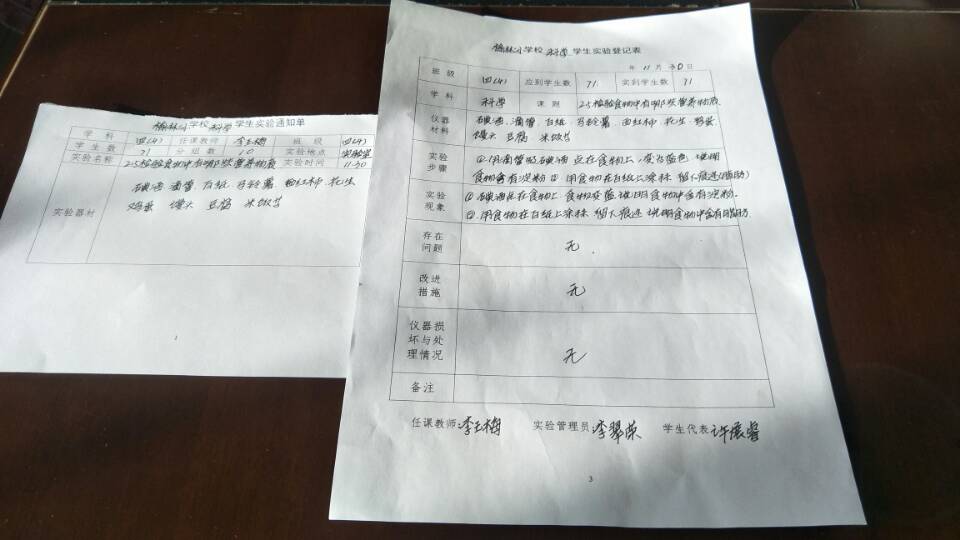 榆林小学校 科学 学生实验通知单
学科 四(4) 任课教师 李玉梅 班级 四(4)
学生数 71 分组数 10 实验地点 实验室
实验名称 2.5检验食物中有哪些营养物质 实验时间 11.30
实验器材
碘酒 滴管 白纸 马铃薯 西红柿 花生
鸡蛋 馒头 豆腐 米饭等
1
榆林小学校 科学 学生实验登记表
年 11 月 30 日
班级 四(4) 应到学生数 71 实到学生数 71
学科 科学 课题 2.5检验食物中有哪些营养物质
仪器材料
碘酒、滴管、白纸、马铃薯、西红柿、花生、鸡蛋
馒头 豆腐 米饭等
实验步骤
①用滴管将碘酒点在食物上,变为蓝色 说明
食物含有淀粉 ②用食物在白纸上涂抹 留下痕迹(脂肪)
实验现象
①碘酒点在食物上,食物变蓝 说明食物中含有淀粉.
②用食物在白纸上涂抹 留下痕迹 说明食物中含有脂肪.
存在问题 无.
改进措施 无
仪器损坏与处理情况 无
备注
任课教师 李玉梅 实验管理员 李翠荣 学生代表 许宸睿
3